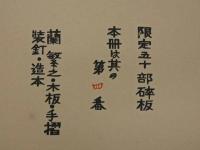 限定五十部碎板
本册は其の
第四番
蘭繁之・木板・手摺
装釘・造本